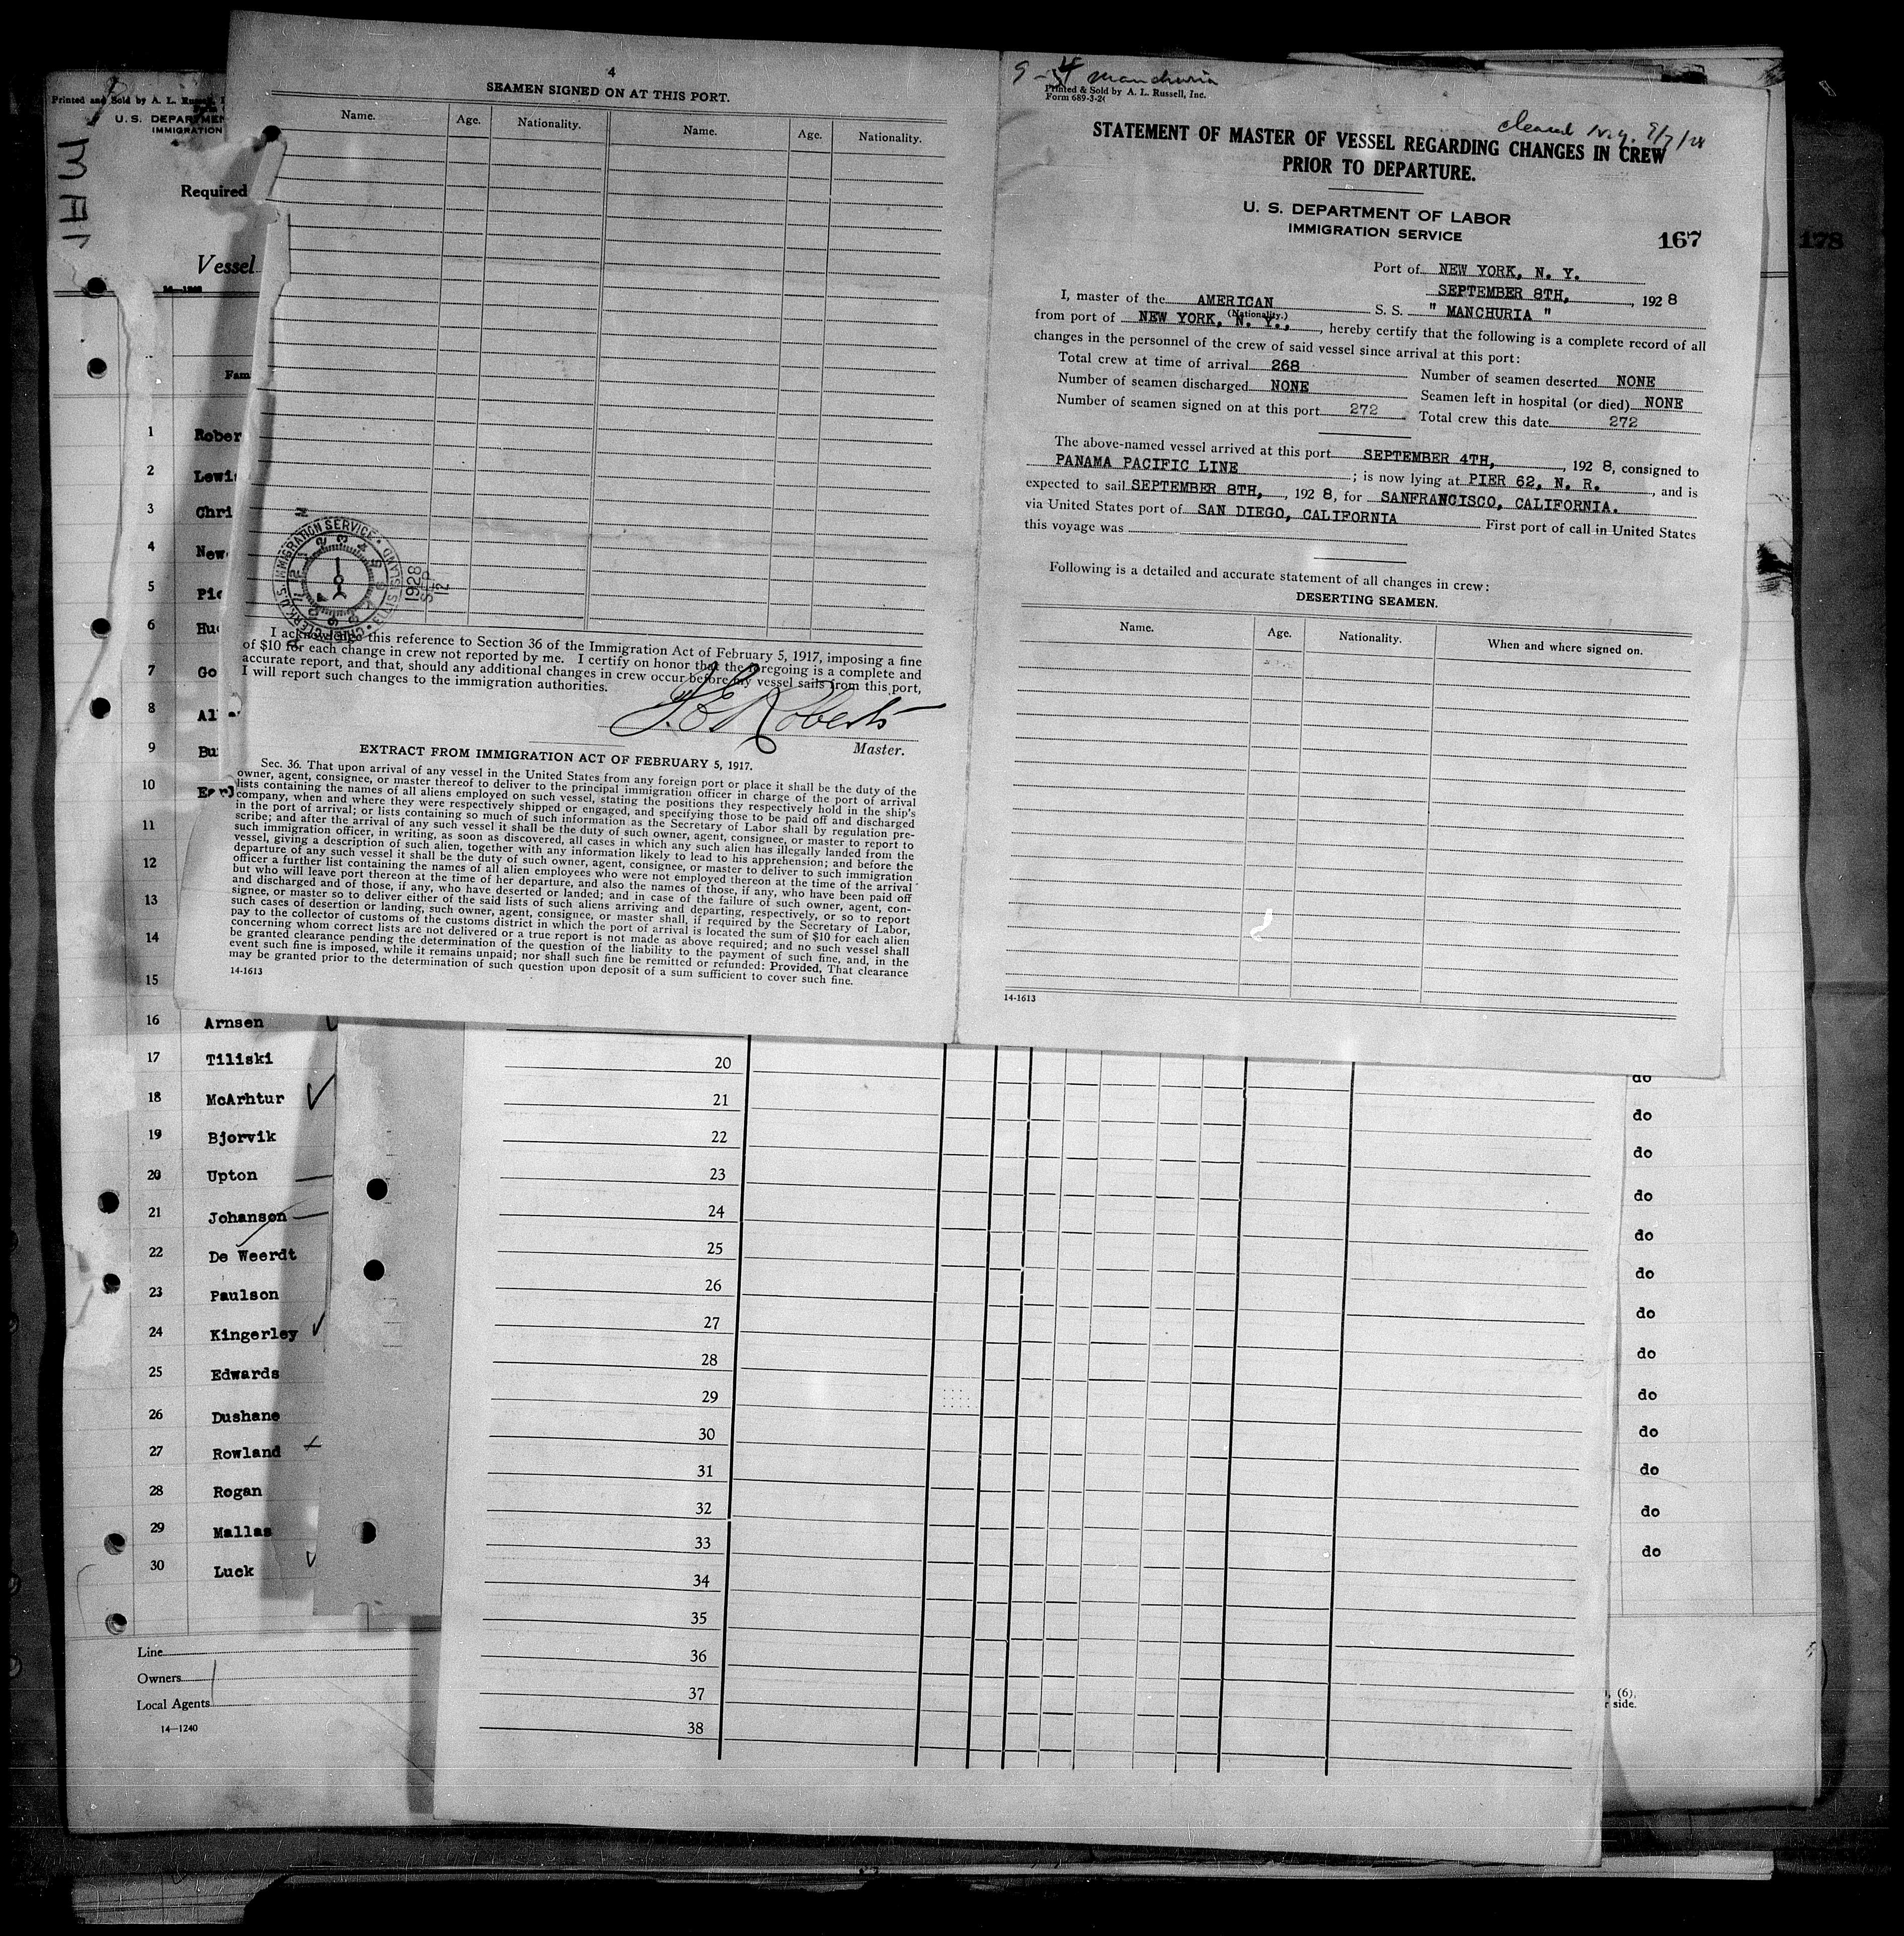 Printed and Sold by A. L. Russell,
U. S. DEPARTMEN
IMMIGRATION
Required
Vessel
178
4
SEAMEN SIGNED ON AT THIS PORT.
Name. Age. Nationality. Name. Age. Nationality.
U.S. IMMIGRATION SERVICE
ELLIS ISLAND
CHIEF CLERK
1928
SEP
12
I acknowledge this reference to Section 36 of the Immigration Act of February 5, 1917, imposing a fine
of $10 for each change in crew not reported by me. I certify on honor that the foregoing is a complete and
accurate report, and that, should any additional changes in crew occur before my vessel sails from this port,
I will report such changes to the immigration authorities.
Roberts
Master.
EXTRACT FROM IMMIGRATION ACT OF FEBRUARY 5, 1917.
Sec. 36. That upon arrival of any vessel in the United States from any foreign port or place it shall be the duty of the
owner, agent, consignee, or master thereof to deliver to the principal immigration officer in charge of the port of arrival
lists containing the names of all aliens employed on such vessel, stating the positions they respectively hold in the ship's
company, when and where they were respectively shipped or engaged, and specifying those to be paid off and discharged
in the port of arrival; or lists containing so much of such information as the Secretary of Labor shall by regulation pre-
scribe; and after the arrival of any such vessel it shall be the duty of such owner, agent, consignee, or master to report to
such immigration officer, in writing, as soon as discovered, all cases in which any such alien has illegally landed from the
vessel, giving a description of such alien, together with any information likely to lead to his apprehension; and before the
departure of any such vessel it shall be the duty of such owner, agent, consignee, or master to deliver to such immigration
officer a further list containing the names of all alien employees who were not employed thereon at the time of the arrival
but who will leave port thereon at the time of her departure, and also the names of those, if any, who have been paid off
and discharged and of those, if any, who have deserted or landed; and in case of the failure of such owner, agent, con-
signee, or master so to deliver either of the said lists of such aliens arriving and departing, respectively, or so to report
such cases of desertion or landing, such owner, agent, consignee, or master shall, if required by the Secretary of Labor,
pay to the collector of customs of the customs district in which the port of arrival is located the sum of $10 for each alien
concerning whom correct lists are not delivered or a true report is not made as above required; and no such vessel shall
be granted clearance pending the determination of the question of the liability to the payment of such fine, and, in the
event such fine is imposed, while it remains unpaid; nor shall such fine be remitted or refunded: Provided, That clearance
may be granted prior to the determination of such question upon deposit of a sum sufficient to cover such fine.
14-1613
9-4 Manchuria
Printed & Sold by A. L. Russell, Inc.
Form 689-3-2
cleared N.Y. 9/7/28
STATEMENT OF MASTER OF VESSEL REGARDING CHANGES IN CREW
PRIOR TO DEPARTURE.
U. S. DEPARTMENT OF LABOR
IMMIGRATION SERVICE
167
Port of NEW YORK, N. Y.
SEPTEMBER 8TH, , 192 8
I, master of the AMERICAN S. S. " MANCHURIA "
(Nationality.)
from port of NEW YORK, N. Y., , hereby certify that the following is a complete record of all
changes in the personnel of the crew of said vessel since arrival at this port:
Total crew at time of arrival 268 Number of seamen deserted NONE
Number of seamen discharged NONE Seamen left in hospital (or died) NONE
Number of seamen signed on at this port 272 Total crew this date 272
The above-named vessel arrived at this port SEPTEMBER 4TH, , 192 8, consigned to
PANAMA PACIFIC LINE ; is now lying at PIER 62, N. R. , and is
expected to sail SEPTEMBER 8TH, , 192 8, for SANFRANCISCO, CALIFORNIA.
via United States port of SAN DIEGO, CALIFORNIA First port of call in United States
this voyage was
Following is a detailed and accurate statement of all changes in crew:
DESERTING SEAMEN.
Name. Age. Nationality. When and where signed on.
14-1613
Fam
1 Rober
2 Lewi
3 Chri
4 New
5 Pic
6 Hu
7 Go
8 Al
9 Bu
10
11
12
13
14
15
16 Arnsen
17 Tiliski
18 McArhtur
19 Bjorvik
20 Upton
21 Johanson
22 De Weerdt
23 Paulson
24 Kingerley
25 Edwards
26 Dushane
27 Rowland
28 Rogan
29 Mallas
30 Luck
Line
Owners
Local Agents
14—1240
20
21
22
23
24
25
26
27
28
29
30
31
32
33
34
35
36
37
38
do
do
do
do
do
do
do
do
do
do
do
do
do
, (6),
r side.